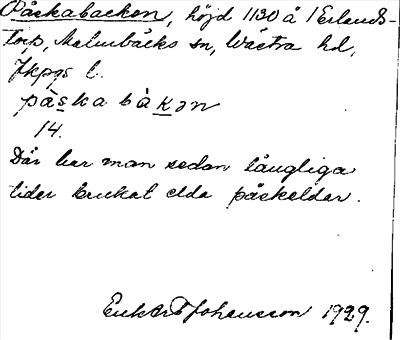 Påskabacken, höjd 1130 å 1 Erlands-
torp, Malmbäcks sn, Västra hd,
Jkpgs l.
pàskabàkən
14.
Där har man sedan långliga
tider brukat elda påskeldar.
Johansson 1929.